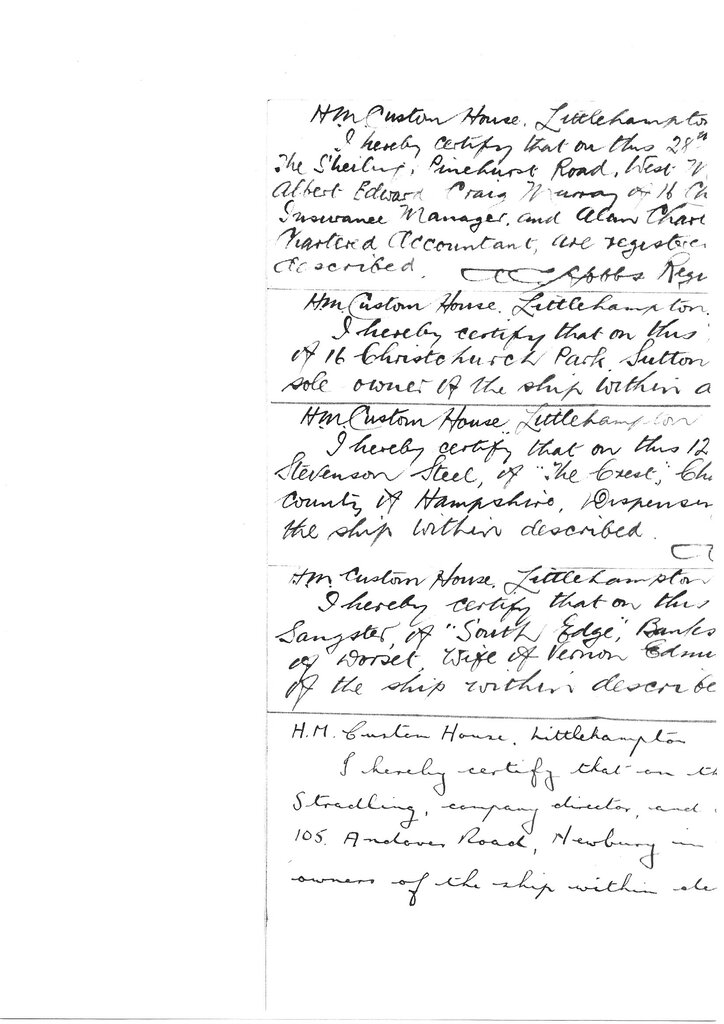 H.M. Custom House. Littlehampto
I hereby certify that on this 28th
The Sheiling, Pinehurst Road, West M
Albert Edward Craig Murray of 16 Ch
Insurance Manager, and Alan Char
Chartered Accountant, are register
described. Regi
H.M. Custom House. Littlehampton.
I hereby certify that on this
of 16 Christchurch Park, Sutton
sole owner of the ship within d
H.M. Custom House, Littlehampton
I hereby certify that on this 12
Stevenson Steel, of "The Crest", Ch
County of Hampshire, Dispenser
the ship within described.
H.M. Custom House, Littlehampton
I hereby certify that on this
Sangster of "South Edge", Banks
of Dorset, Wife of Vernon Edmu
of the ship within describe
H.M. Custom House, Littlehampton
I hereby certify that on th
Stradling, company director, and
105. Andover Road, Newbury in
owners of the ship within de